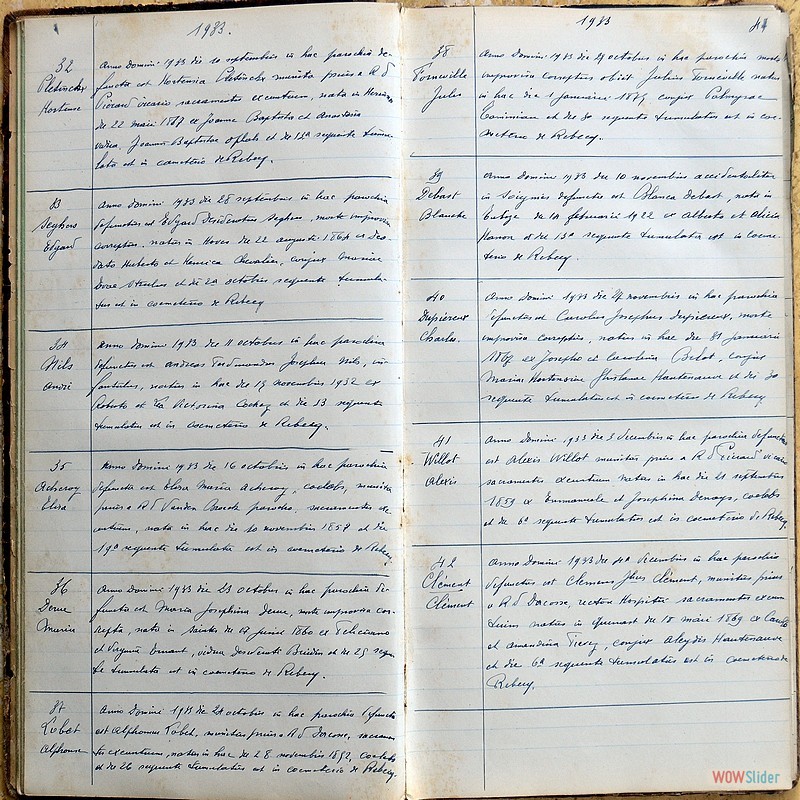 1933.
32
Pletinckx
Hortense
Anno Domini 1933 die 10 septembris in hac parochia de-
functa est Hortensia Pletinckx munita prius a R d
Pierard vicario sacramentis exeuntium, nata in Hennuy
die 22 maii 1867 ex Joanne Baptista et Anastasia
vidua Joannis Baptistae et die 13a sequente tumu-
lata est in cœmeterio de Rebecq.
33
Seghers
Edgard
Anno Domini 1933 die 28 septembris in hac parochia
defunctus est Edgard Desideratus Seghers, morte improvisa
correptus, natus in Hoves die 22 augusti 1864 ex Deo-
dato Huberto et Henrica Chevalier, conjux Mariae
et die 2a octobris sequente tumula-
tus est in cœmeterio de Rebecq
34
Nils
André
Anno Domini 1933 die 11 octobris in hac parochia
defunctus est Andreas Ferdinandus Josephus Nils, in-
fantulus, natus in hac die 15 novembris 1932 ex
Roberto et Victorina Cochez et die 13 sequente
tumulatus est in cœmeterio de Rebecq.
35
Acheroy
Elisa
Anno Domini 1933 die 16 octobris in hac parochia
defuncta est Elisa Maria Acheroy, coelebs, munita
prius a R d Vanden parocho, sacramentis ex-
euntium, nata in hac die 10 novembris 1857 et die
19a sequente tumulata est in cœmeterio de Rebecq
36
Derue
Maria
Anno Domini 1933 die 23 octobris in hac parochia de-
functa est Maria Josephina Derue, morte improvisa cor-
repta, nata in die 12 junii 1860 ex
et Virginia vidua Desiderati et die 25 sequen-
te tumulata est in cœmeterio de Rebecq.
37
Lobet
Alphonse
Anno Domini 1933 die 24 octobris in hac parochia defunctus
est Alphonsus Lobet, munitus prius a R d Dacosse, sacramen-
tis exeuntium, natus in hac die 28 novembris 1852, coelebs
et die 26 sequente tumulatus est in cœmeterio de Rebecq.
1933
41
38
Torneville
Jules
Anno Domini 1933 die 29 octobris in hac parochia morte
improvisa correptus obiit Julius Torneville natus
in hac die 1 januarii 1875 conjux Palmyrae
et die 30 sequente tumulatus est in coe-
meterio de Rebecq.
39
Debast
Blanche
Anno Domini 1933 die 10 novembris accidentaliter
in Soignies defuncta est Blanca Debast, nata in
Tubize die 14 februarii 1922 ex Alberto et Alicia
Hanon et die 13a sequente tumulata est in cœme-
terio de Rebecq.
40
Dupiereux
Charles
Anno Domini 1933 die 27 novembris in hac parochia
defunctus est Carolus Josephus Dupiereux, morte
improvisa correptus, natus in hac die 31 januarii
1867 ex Josepho et Carolina Belot, conjux
Mariae Hortensiae Ghislanae Hautenauve et die 30
sequente tumulatus est in cœmeterio de Rebecq
41
Willot
Alexis
Anno Domini 1933 die 3 decembris in hac parochia defunctus
est Alexis Willot munitus prius a R d Pierard vicario
sacramentis exeuntium natus in hac die 21 septembris
1859 ex Emmanuele et Josephina Denayer, coelebs
et die 6a sequente tumulatus est in cœmeterio de Rebecq.
42
Clément
Clément
Anno Domini 1933 die 4a decembris in hac parochia
defunctus est Clemens Clément, munitus prius
a R d Dacosse, rectore Hospitii sacramentis exeun-
tium natus in Quenast die 18 maii 1869 ex
et Amandina conjux Aleydis Hautenauve
et die 6a sequente tumulatus est in cœmeterio de
Rebecq.
WOWSlider